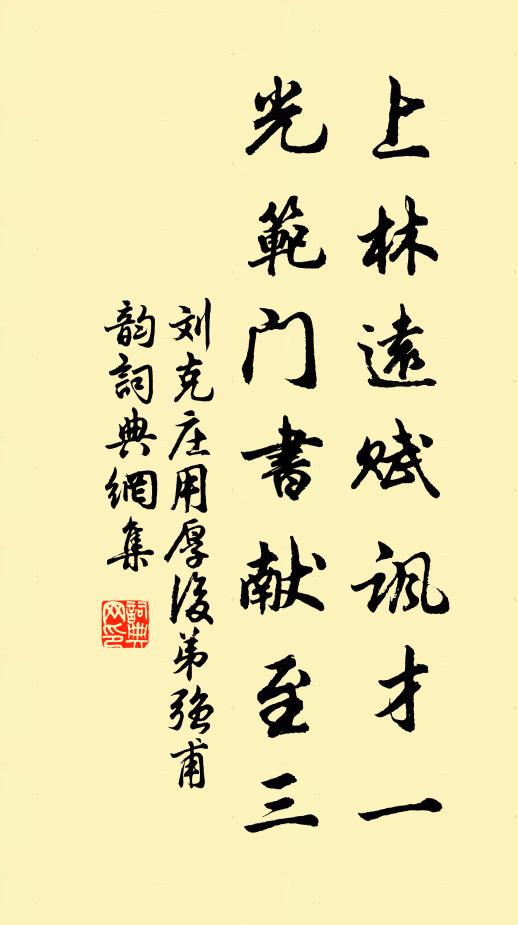 上林遠赋讽才一
光範门書献至三
刘克庄用厚後弟强甫
韵詞典網集
詞典
网印